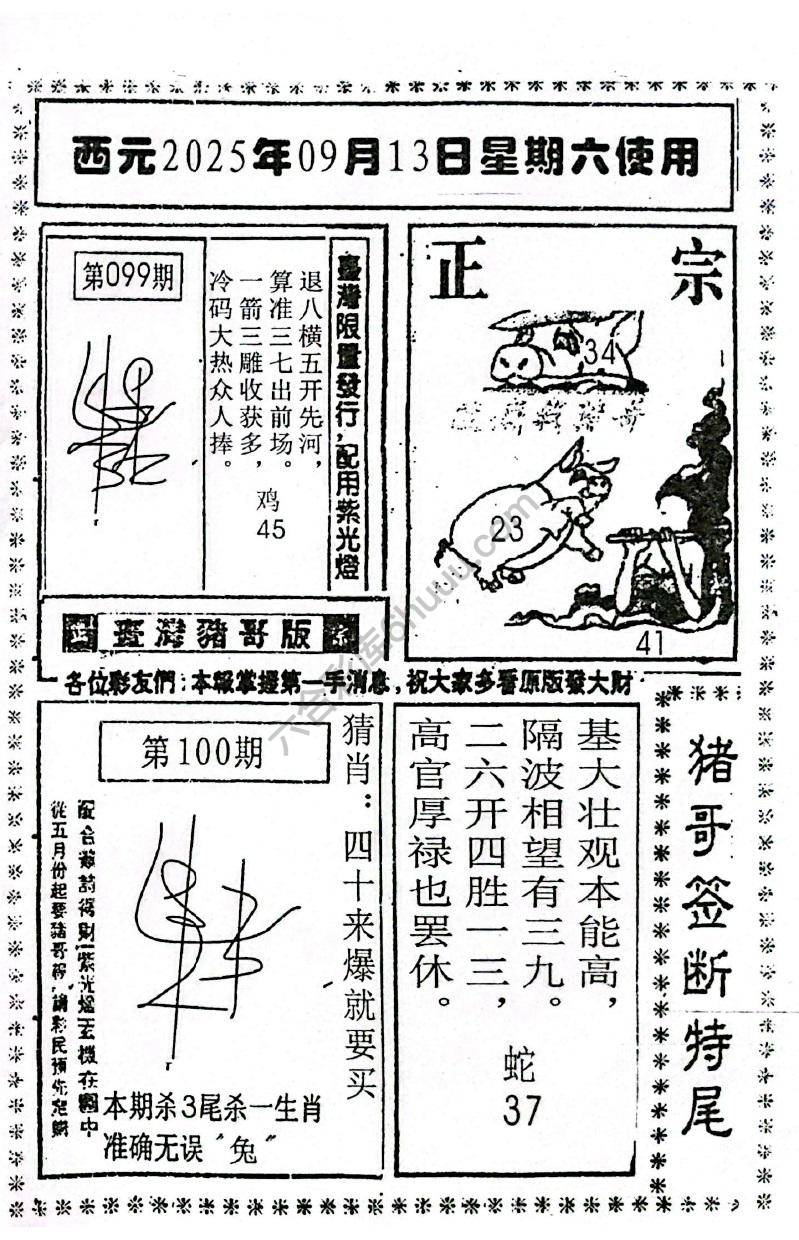 西元2025年09月13日星期六使用
第099期
退八横五开先河，
算准三七出前场。
一箭三雕收获多，
冷码大热众人捧。
鸡
45
臺灣限量發行，配用紫光燈
正宗
34
23
41
正 臺灣豬哥版 宗
各位彩友們：本報掌握第一手消息，祝大家多看原版發大財
第100期
猜肖：四十来爆就要买
從五月份起要豬哥報，請彩民預先定購
本期杀3尾杀一生肖
准确无误“兔”
基大壮观本能高，
隔波相望有三九。
二六开四胜一三，
高官厚禄也罢休。
蛇
37
猪哥签断特尾
六合彩库6huuu.com